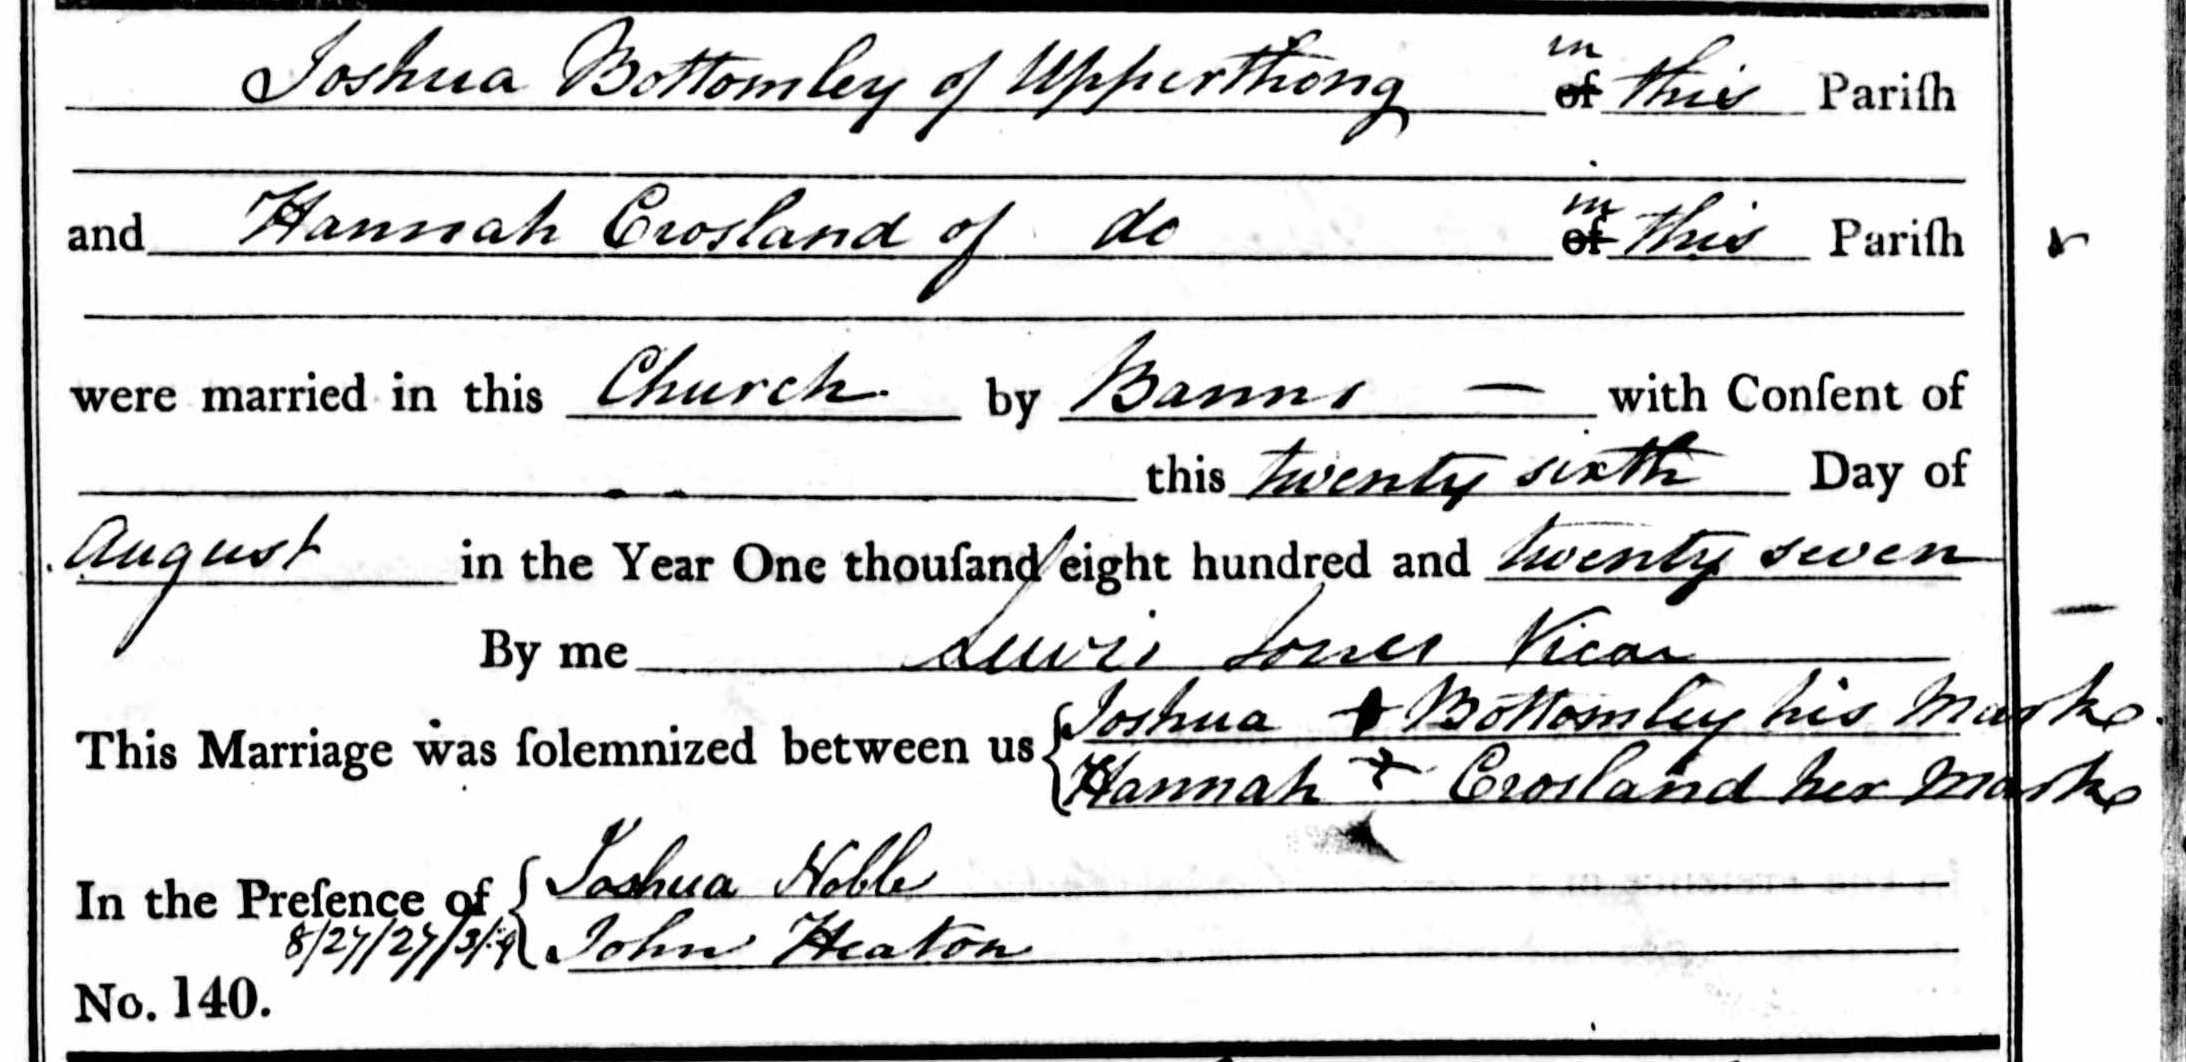 Joshua Bottomley of Upperthong in of this Pariſh
and Hannah Crosland of do in of this Pariſh
were married in this Church by Banns — with Conſent of
this twenty sixth Day of
August in the Year One thouſand eight hundred and twenty seven
By me Lewis Jones Vicar
This Marriage was ſolemnized between us { Joshua + Bottomley his Marke
Hannah + Crosland her Marke
In the Preſence of { Joshua Noble
8/27/27/3/ John Heaton
No. 140.